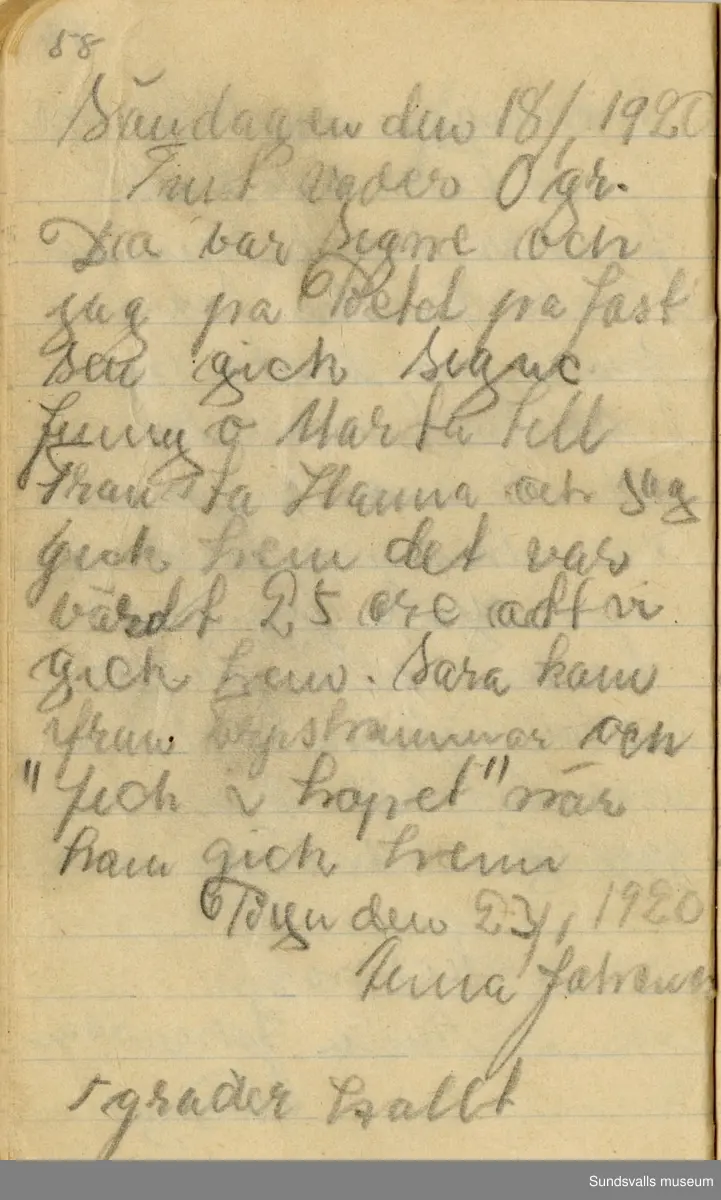 58
Söndagen den 18/1 1920
Fint väder 0 gr.
Då var Signe och
jag på Betel på fäst
sen gick Signe
Jenny o Märta till
Transta Hanna och jag
gick hem det var
värdt 25 öre att vi
gick hem. Sara kom
ifrån och
"fick i hopet" när
hon gick hem
Byn den 23/1 1920
Anna
5 grader kallt
Sundsvalls museum